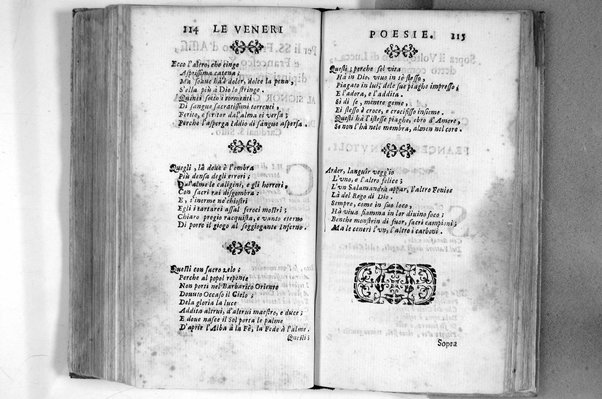 114 LE VENERI
Ecco l'altro, che cinge
Asprissima catena;
Ma soaue hà'l dolor, dolce la pena,
S'ella più à Dio lo stringe.
Quindi sotto i tormenti
Di sangue sacratissimi torrenti
Ferito, e feritor dal'alma ei versa;
Perche l'asperga Iddio di sangue aspersa.
Quegli, là doue è l'ombra
Più densa degli errori;
Dust'alme le caligini, e gli horrori,
Con sacri rai disgombra:
E, s'inerme ne'chiostri
Egli i tartarei assal feroci mostri;
Chiaro pregio racquista, e vanto eterno
Di porre il giogo al soggiogante Inferno.
Questi con sacro zelo;
Perche al popol repente
Non porti nel Barbarico Oriente
Donuto Occaso il Cielo;
Dela gloria la luce
Addita altrui, d'altrui maestro, e duce;
E doue nasce il Sol porta le palme
D'aprir l'Alba à la Fè, la Fede à l'alme.
Questi;
POESIE. 115
Questi; perche sol vita
Hà in Dio, viuo in sè stesso,
Piagato in lui, dele sue piaghe impresso;
E l'adora, e l'addita.
Si di se, mentre geme,
Ei stesso è croce, e crocifisso insieme.
Questi hà l'istesse piaghe, ebro d'Amore,
Se non l'hà nele membra, almen nel core.
Arder, languir vegg'io
L'vno, e l'altro felice;
L'vn Salamandria appar, l'altro Fenice
Là del Rogo di Dio.
Sempre, come in suo loco,
Hà viua fiamma in lor diuino foco;
Benche monstrin di fuor, sacri campioni;
Ma le ceneri l'vn, l'altro i carboni.
Sopra